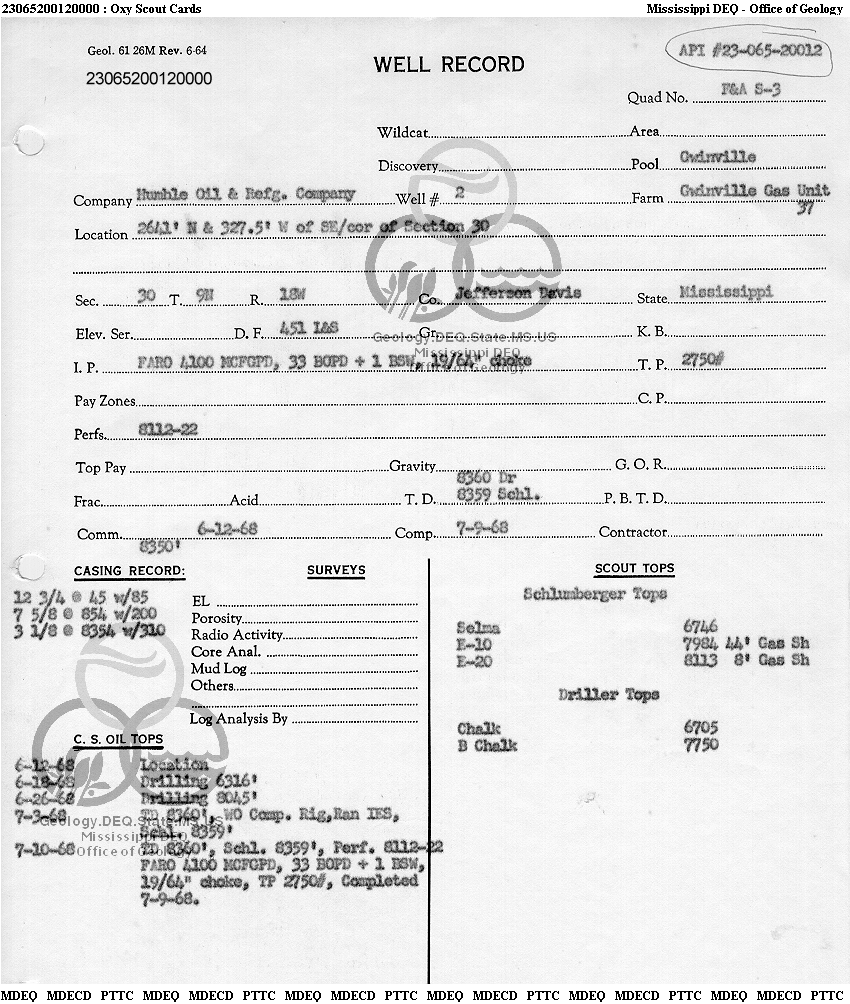 23065200120000 : Oxy Scout Cards Mississippi DEQ - Office of Geology
Geol. 61 26M Rev. 6-64
API #23-065-20012
WELL RECORD
23065200120000
Quad No. F&A S-3
Wildcat Area
Discovery Pool Gwinville
Company Humble Oil & Refg. Company Well # 2 Farm Gwinville Gas Unit
37
Location 2641' N & 327.5' W of SE/cor of Section 30
Sec. 30 T. 9N R. 18W Co. Jefferson Davis State Mississippi
Elev. Ser. D. F. 451 I&S Gr. K. B.
Geology.DEQ.State.MS.US
Mississippi DEQ
Office of Geology
I. P. FARO 4100 MCFGPD, 33 BOPD + 1 BSW, 19/64" choke T. P. 2750#
Pay Zones C. P.
Perfs. 8112-22
Top Pay Gravity G. O. R.
8360 Dr
Frac. Acid T. D. 8359 Schl. P. B. T. D.
Comm. 6-12-68 Comp. 7-9-68 Contractor
8350'
CASING RECORD: SURVEYS SCOUT TOPS
12 3/4 @ 45 w/85
7 5/8 @ 854 w/200
3 1/8 @ 8354 w/310
EL
Porosity
Radio Activity
Core Anal.
Mud Log
Others
Log Analysis By
Schlumberger Tops
Selma 6746
E-10 7984 44' Gas Sh
E-20 8113 8' Gas Sh
Driller Tops
Chalk 6705
B Chalk 7750
C. S. OIL TOPS
6-12-68 Location
6-18-68 Drilling 6316'
6-26-68 Drilling 8045'
7-3-68 TD 8360', WO Comp. Rig,Ran IES,
Schl. 8359'
Geology.DEQ.State.MS.US
Mississippi DEQ
Office of Geology
7-10-68 TD 8360', Schl. 8359', Perf. 8112-22
FARO 4100 MCFGPD, 33 BOPD + 1 BSW,
19/64" choke, TP 2750#, Completed
7-9-68.
MDEQ MDECD PTTC MDEQ MDECD PTTC MDEQ MDECD PTTC MDEQ MDECD PTTC MDEQ MDECD PTTC MDEQ MDECD PTTC